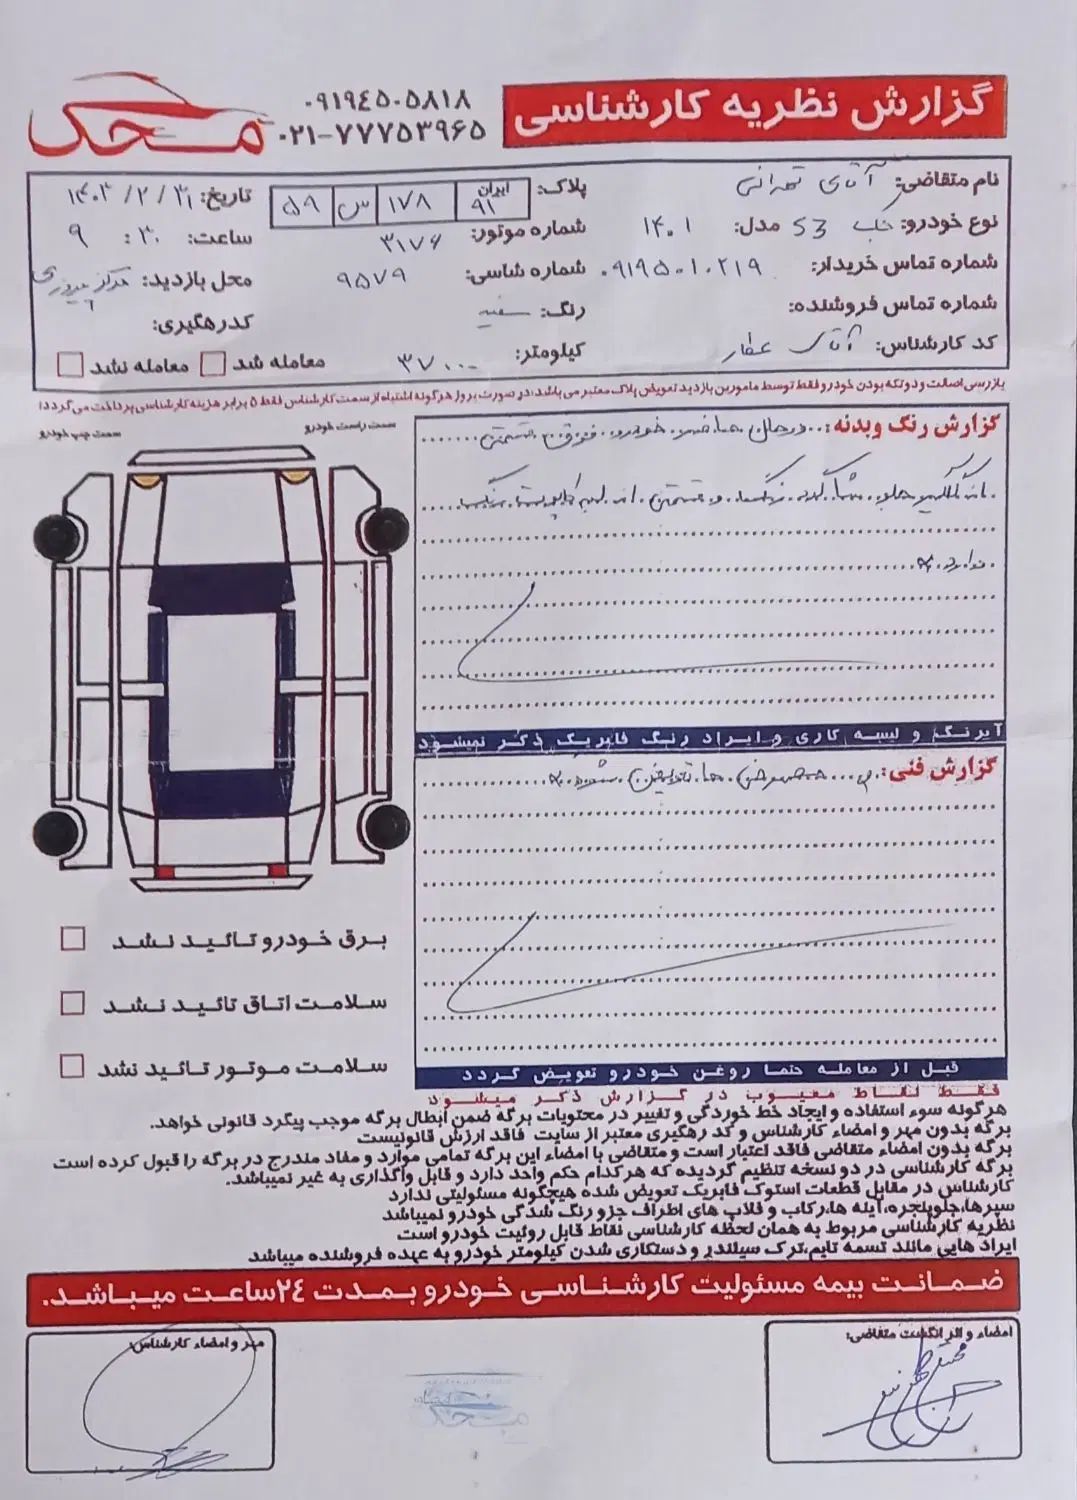 گزارش نظریه کارشناسی
۰۹۱۹۴۵۰۵۸۱۸
۰۲۱-۷۷۷۵۳۹۶۵
محک
نام متقاضی: آقای تهرانی
پلاک: ایران ۹۱ ۱۷۸ س ۵۹
تاریخ: ۱۴۰۳/۲/۳۱
نوع خودرو: جک S3 مدل: ۱۴۰۱
شماره موتور: ۳۱۷۶
ساعت: ۹:۳۰
شماره تماس خریدار: ۰۹۱۹۵۰۱۰۲۱۹
شماره شاسی: ۹۵۷۹
محل بازدید: مرکز پیروزی
شماره تماس فروشنده:
رنگ: سفید
کدرهگیری:
کد کارشناس: آقای عطار
کیلومتر: ۳۷۰۰۰
معامله شد
معامله نشد
بازرسی اصالت و دوتکه بودن خودرو فقط توسط مامورین بازدید تعویض پلاک معتبر می باشد، در صورت بروز هرگونه اشتباه از سمت کارشناس فقط ۵ برابر هزینه کارشناسی پرداخت می گردد.
سمت راست خودرو
سمت چپ خودرو
گزارش رنگ وبدنه: درحال حاضر خودرو فوق قسمتی
از گلگیر جلو شاگرد رنگ و قسمتی از لبه کاپوت رنگ
ندارد
آبرنگ و لیسه کاری و ایراد رنگ فابریک ذکر نمیشود
گزارش فنی:
تعویض شود
قبل از معامله حتما روغن خودرو تعویض گردد
برق خودرو تائید نشد
سلامت اتاق تائید نشد
سلامت موتور تائید نشد
فقط نقاط معیوب در گزارش ذکر میشود
هرگونه سوء استفاده و ایجاد خط خوردگی و تغییر در محتویات برگه ضمن ابطال برگه موجب پیگرد قانونی خواهد.
برگه بدون مهر و امضاء کارشناس و کد رهگیری معتبر از سایت فاقد ارزش قانونیست
برگه بدون امضاء متقاضی فاقد اعتبار است و متقاضی با امضاء این برگه تمامی موارد و مفاد مندرج در برگه را قبول کرده است
برگه کارشناسی در دو نسخه تنظیم گردیده که هرکدام حکم واحد دارد و قابل واگذاری به غیر نمیباشد.
کارشناس در مقابل قطعات استوک فابریک تعویض شده هیچگونه مسئولیتی ندارد
سپرها،جلوپنجره،آینه ها،رکاب و قلاب های اطراف جزو رنگ شدگی خودرو نمیباشد
نظریه کارشناسی مربوط به همان لحظه کارشناسی نقاط قابل روئیت خودرو است
ایراد هایی مانند تسمه تایم،ترک سیلندر و دستکاری شدن کیلومتر خودرو به عهده فروشنده میباشد
ضمانت بیمه مسئولیت کارشناسی خودرو بمدت ۲۴ساعت میباشد.
امضاء و اثر انگشت متقاضی:
مهر و امضاء کارشناس:
محک